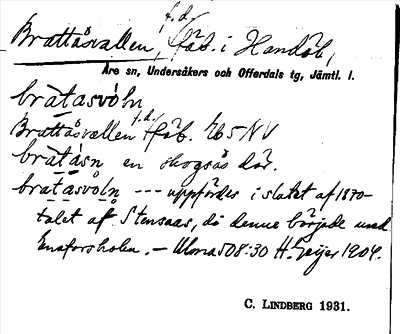 f.d.
Brattåsvallen, fäb. i Handöl,
Åre sn, Undersåkers och Offerdals tg, Jämtl. l.
brätasvöln
f.d.
Brattåsvallen fäb. 765 NV
brätåsn en skogsås där.
brätåsvöln --- uppfördes i slutet af 1870-
talet af Stensaas, då denne började med
Enaforsholm. – Ulma 508:30 H. Geijer 1909.
C. LINDBERG 1931.